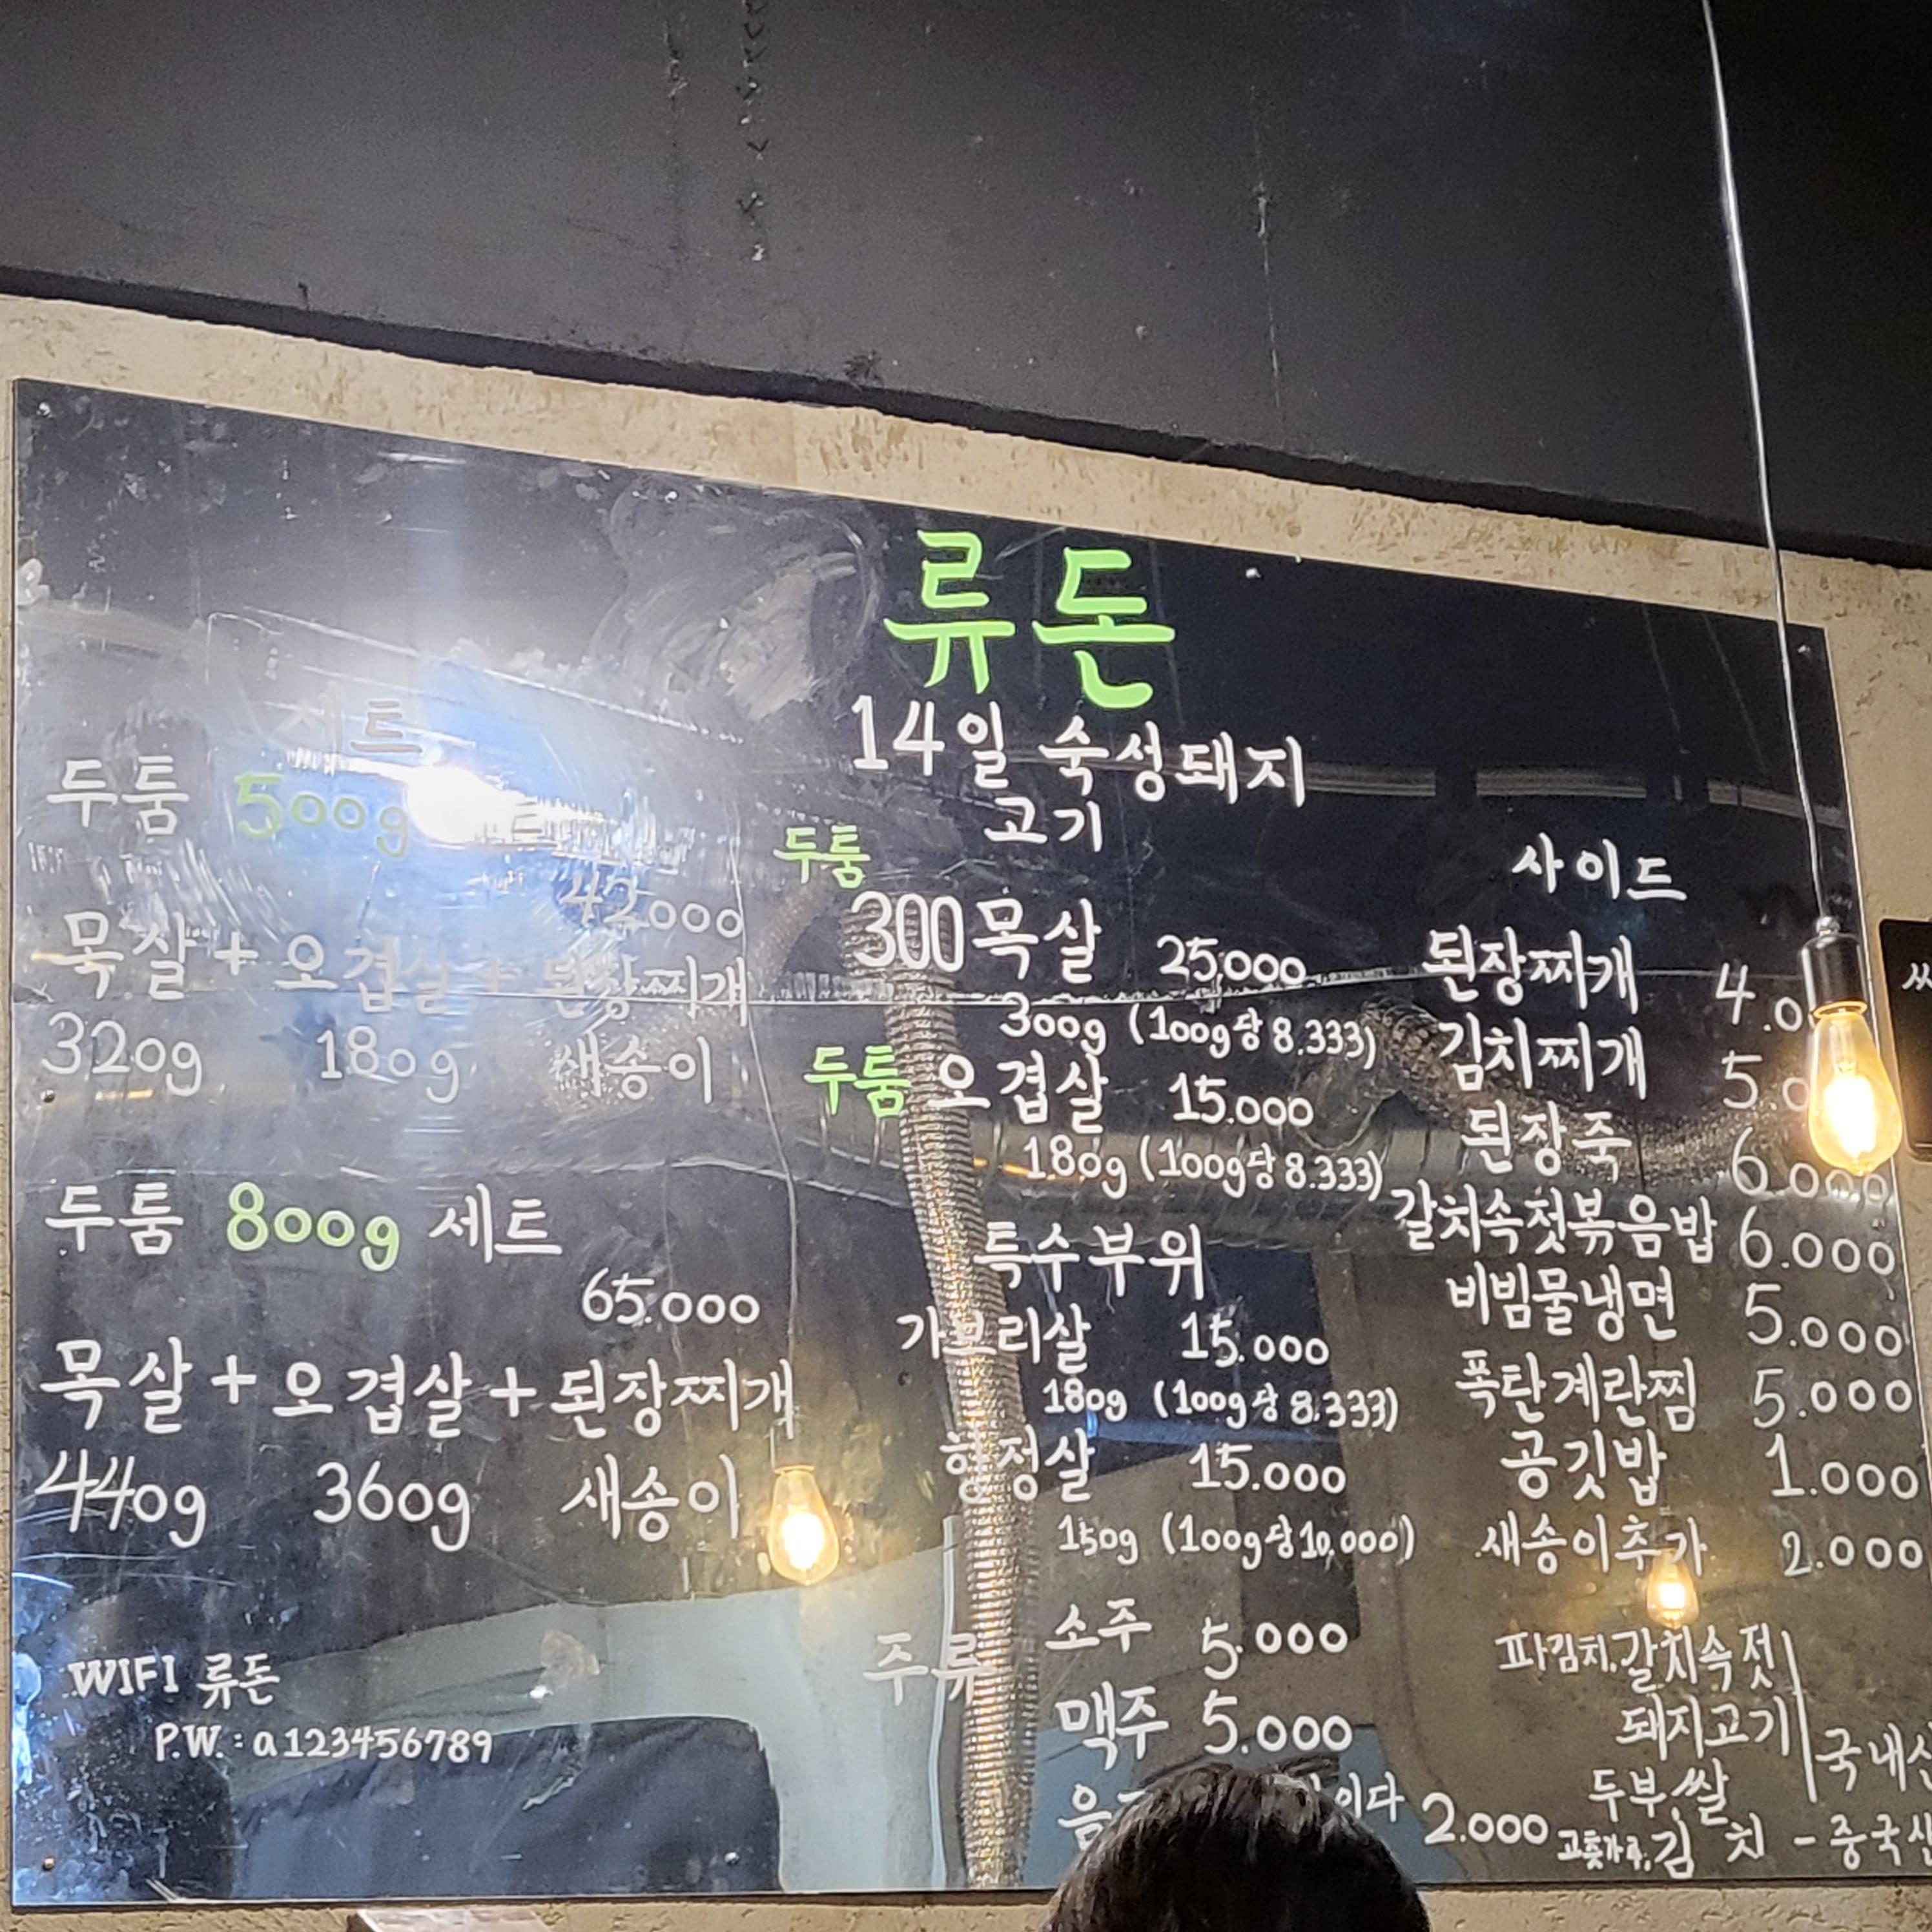 류돈
14일 숙성돼지
세트
두툼 500g
42000
목살 + 오겹살 + 된장찌개
320g 180g 새송이
두툼 800g 세트
65.000
목살 + 오겹살 + 된장찌개
440g 360g 새송이
WIFI 류돈
P.W. : a123456789
고기
두툼
300 목살 25.000
300g (100g당 8.333)
두툼 오겹살 15.000
180g (100g당 8.333)
특수부위
가브리살 15.000
180g (100g당 8.333)
항정살 15.000
150g (100g당 10,000)
주류 소주 5.000
맥주 5.000
2.000
사이드
된장찌개 4.0
김치찌개 5.0
된장죽 6.000
갈치속젓볶음밥 6.000
비빔물냉면 5.000
폭탄계란찜 5.000
공깃밥 1.000
새송이추가 2.000
파김치, 갈치속젓
돼지고기
두부, 쌀
국내산
고춧가루, 김치 - 중국산